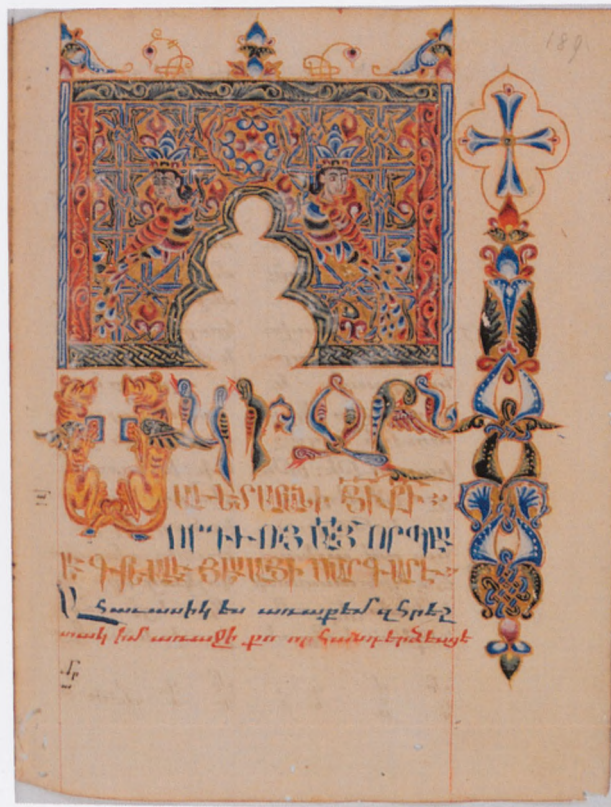 189
ՍԿԻԶԲՆ
ԱՒԵՏԱՐԱՆԻ ՅԻ ՔԻ
ՈՐԴԻՈՅ ԱՅ ՈՐՊԷ
Ս ԳՐԵԱԼ Է ՅԵՍԱՅԻ ՄԱՐԳԱՐԷ
Ահաւասիկ ես առաքեմ զհրեշ
տակ իմ առաջի քո որ հանդերձեսցէ